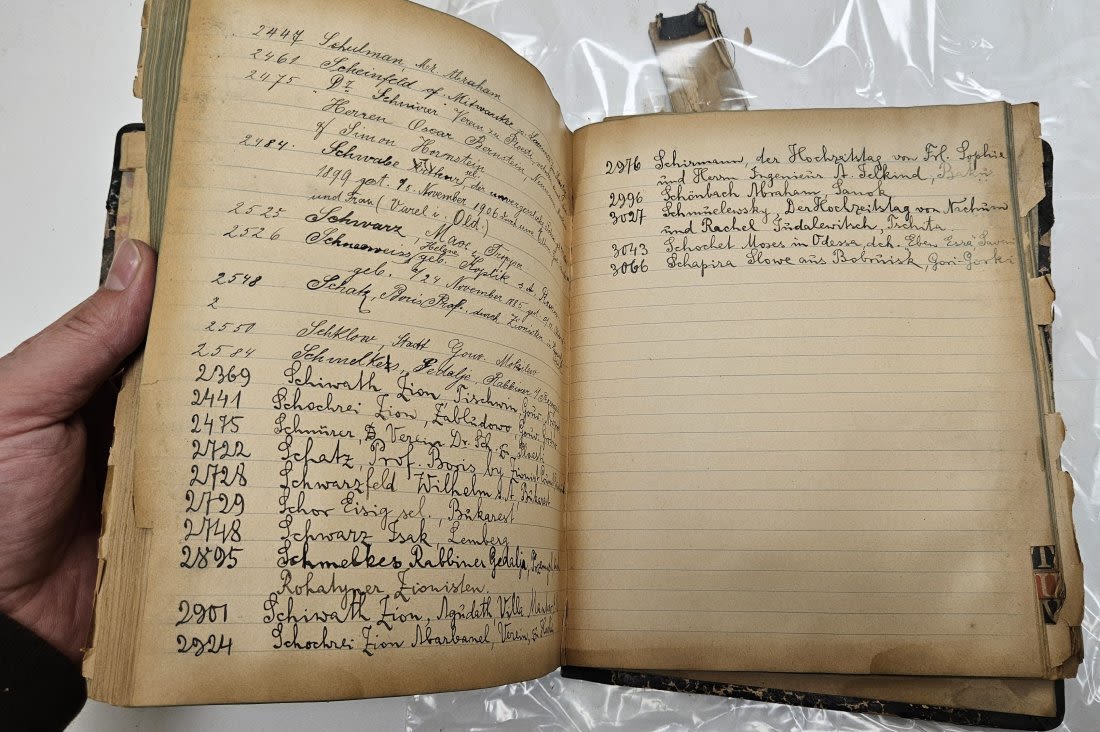 2447 Schulman, Mr. Abraham
2461 Scheinfeld of Milwaukee
2475 Dr. Schnürer Verein zu Ploesti
Herren Oscar Bernstein,
of Simon Hornstein
2484. Schwabe sel. der unvergessliche
1899 gest. November 1906 und
und Frau (Varel i. Old.)
2525 Schwarz, Max, Troppau
2526 Schneeweiss, Helene geb. Koplik s. A.
geb. 24 November 185 gest.
2548 Schatz, Boris Prof. durch Zionisten
2
2550 Schklow, Stadt Gouv. Mohilew
2584 Schmelkes, Gedalje, Rabbiner
2369 Schiwath Zion, Gouv.
2441 Schochrei Zion, Zabludowo, Gouv.
2475 Schnürer, Verein Dr. Sch. Ploesti
2722 Schatz, Prof. Boris by Zionist
2728 Schwarzfeld Wilhelm s. A. Bukarest
2729 Schor Eisig sel., Bukarest
2748 Schwarz Isak, Lemberg
2895 Schmelkes, Rabbiner Gedalja,
Rohatyner Zionisten.
2901 Schiwath Zion, Agudath Villa
2924 Schochrei Zion Abarbanel, Verein,
2976 Schirmann, der Hochzeitstag von Frl. Sophie
und Herrn Ingenieur A. Selkind, Baku
2996 Schönbach Abraham, Sanok
3027 Schmuelewsky, Der Hochzeitstag von Nachum
und Rachel Judalewitsch, Tschita.
3043 Schochet Moses in Odessa, dch. Eben Esra
3066 Schapira Slowe aus Bobruisk, Gori-Gorki
T
U
V